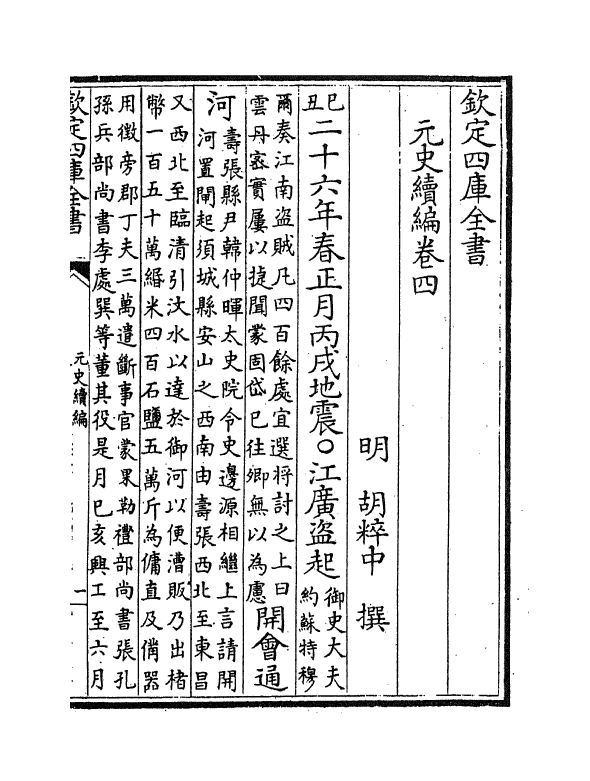 欽定四庫全書
元史續編卷四
明 胡粹中 撰
巳丑
二十六年春正月丙戌地震○江廣盜起
御史大夫
約蘇特穆
爾奏江南盜賊凡四百餘處宜選將討之上曰
雲丹密實屢以捷聞蒙固岱巳往卿無以為慮
開會通
河
壽張縣尹韓仲暉太史院令史邊源相繼上言請開
河置閘起須城縣安山之西南由壽張西北至東昌
又西北至臨清引汶水以達於御河以便漕販乃出楮
幣一百五十萬緡米四百石鹽五萬斤為傭直及備器
用徵旁郡丁夫三萬遣斷事官蒙果勒禮部尚書張孔
孫兵部尚書李處巽等董其役是月巳亥興工至六月
欽定四庫全書
元史續編